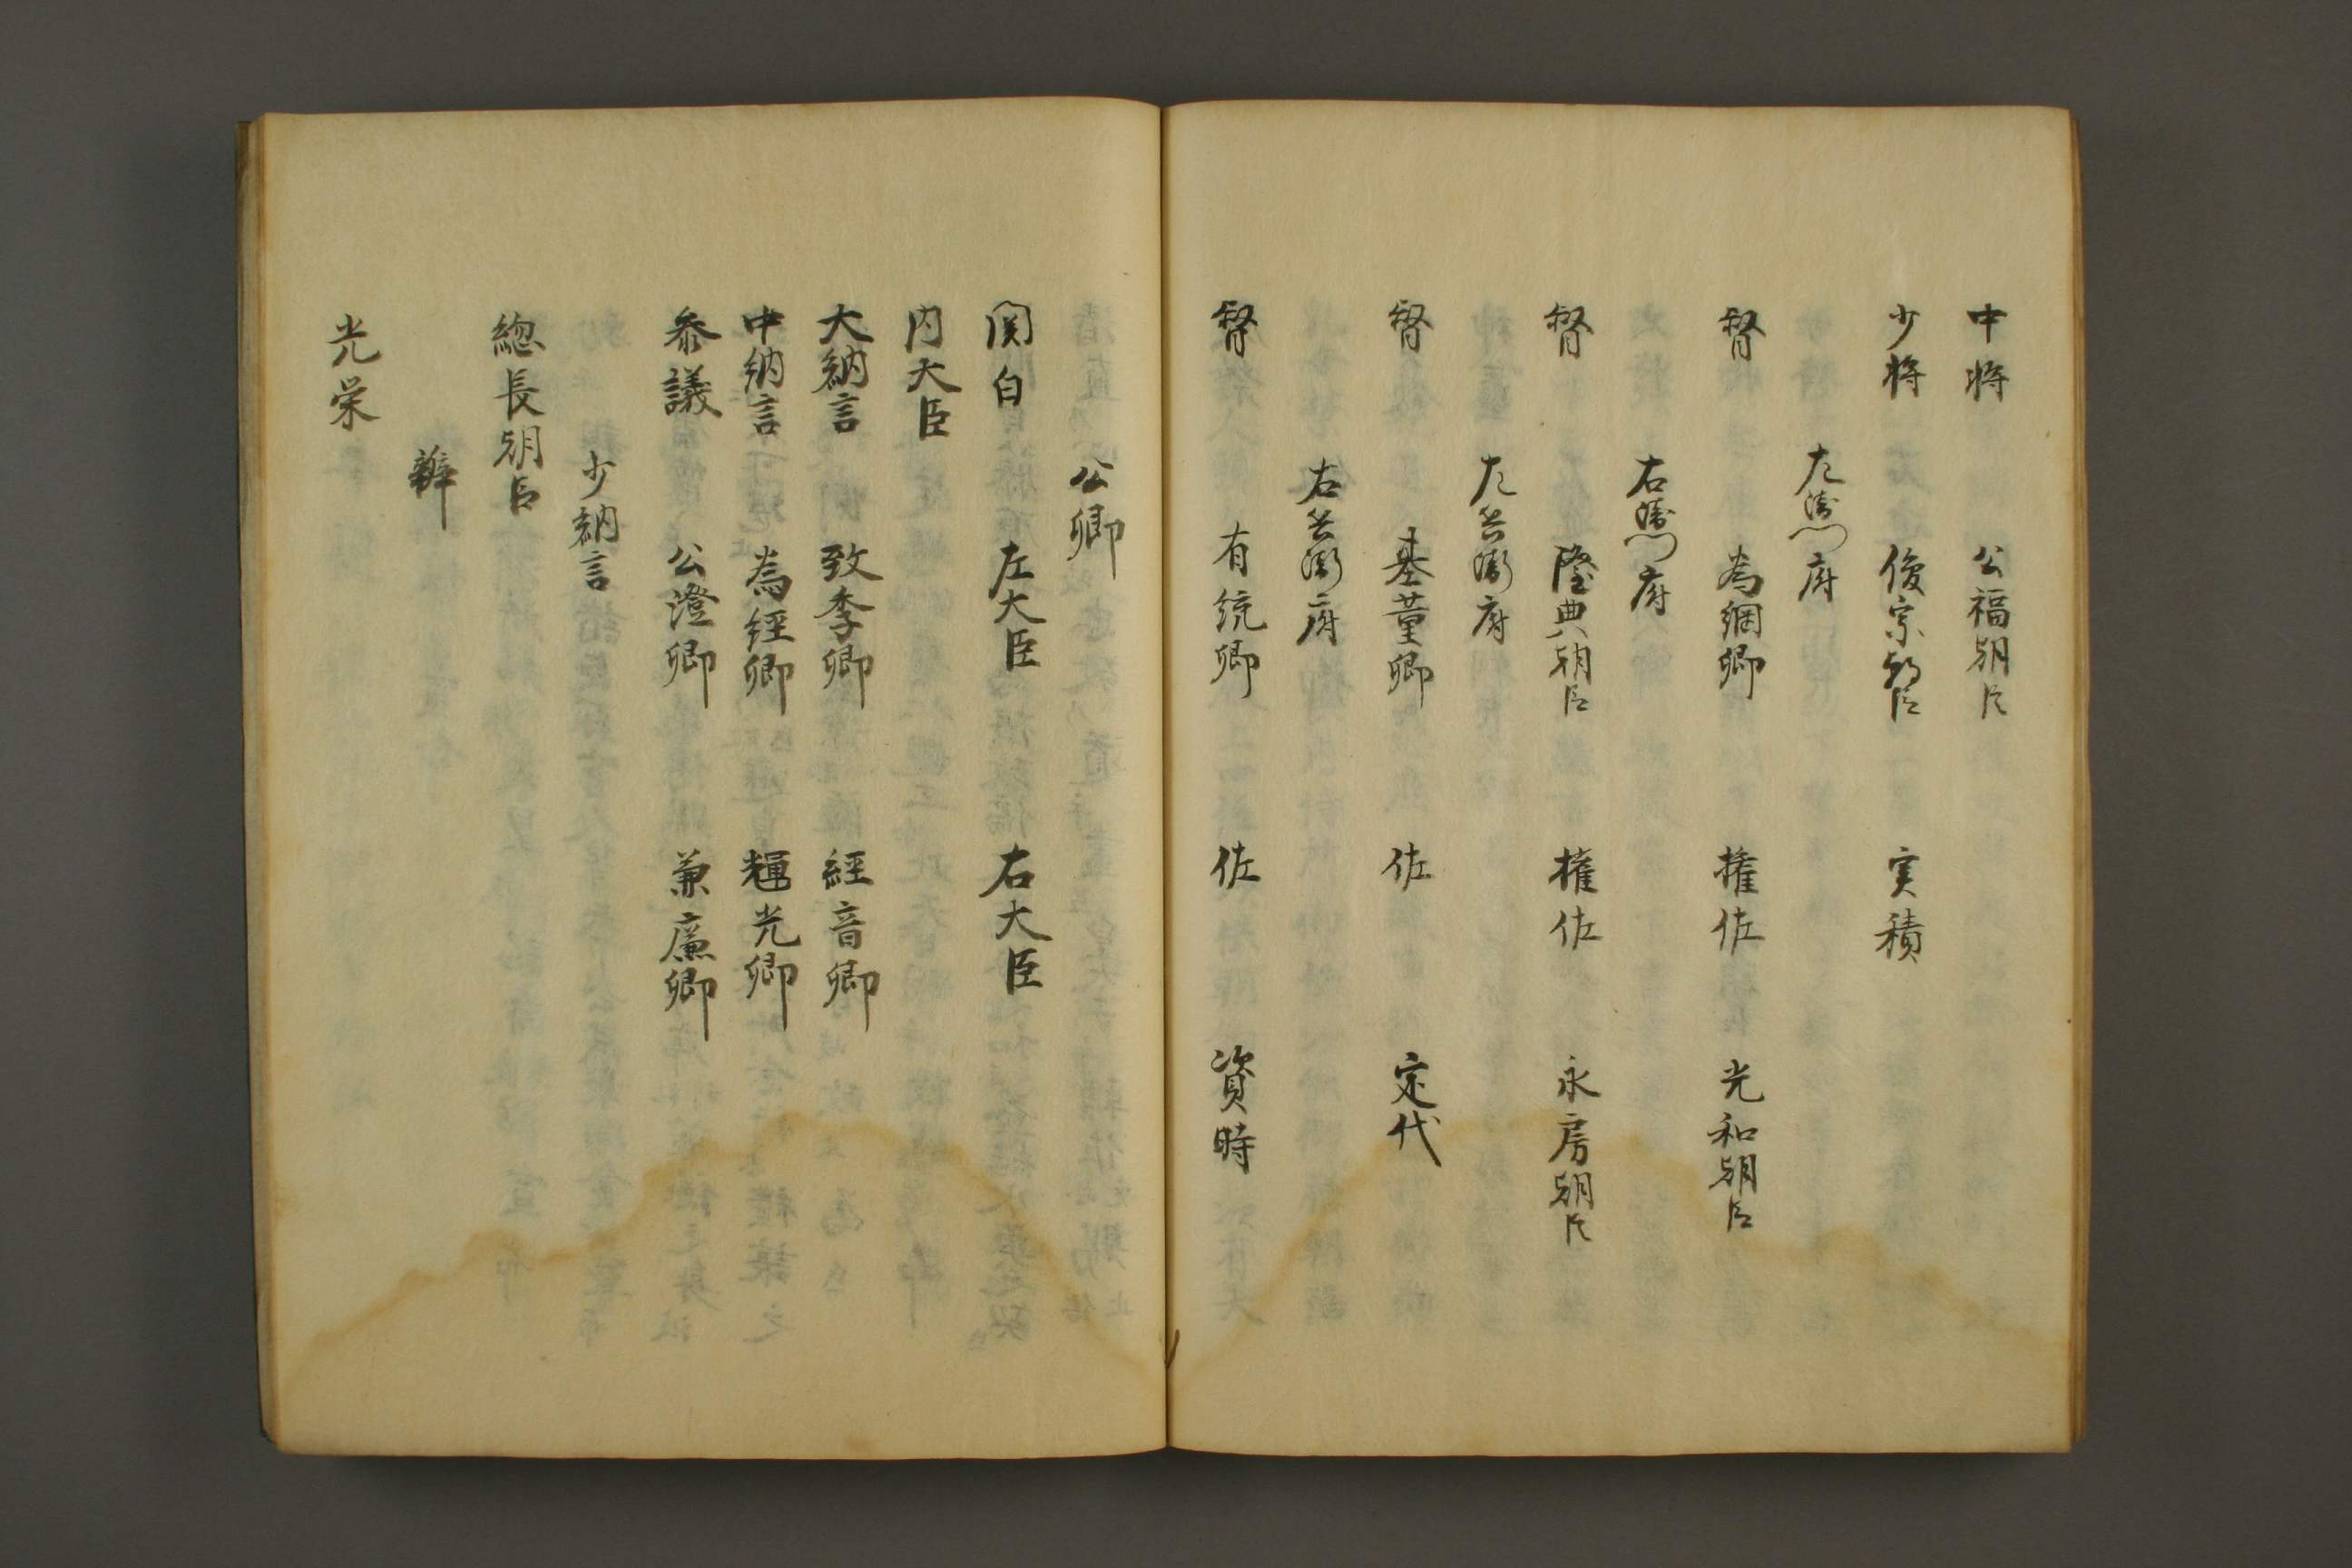 中将 公福朝臣
少将 俊宗朝臣 実積
左衛門府
督 為綱卿 権佐 光和朝臣
右衛門府
督 隆典朝臣 権佐 永房朝臣
左兵衛府
督 基董卿 佐 定代
右兵衛府
督 有統卿 佐 資時
公卿
関白 左大臣 右大臣
内大臣
大納言 致季卿 経音卿
中納言 為経卿 輝光卿
参議 公澄卿 兼廉卿
少納言
総長朝臣
辨
光栄